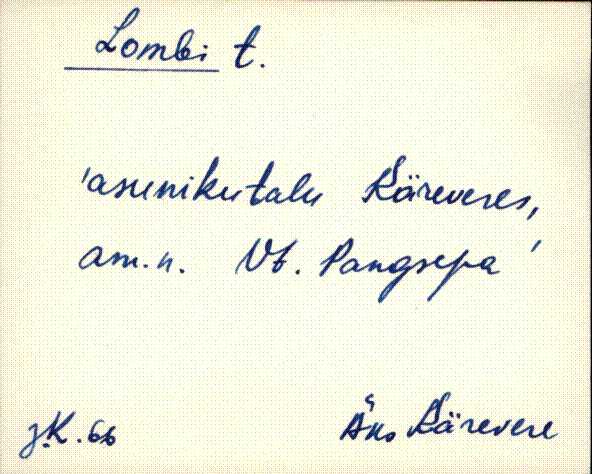 Lombi t.
'asunikutalu Käreveres,
am.n. Vt. Pangsepa'
J.K. 66 Äks Kärevere